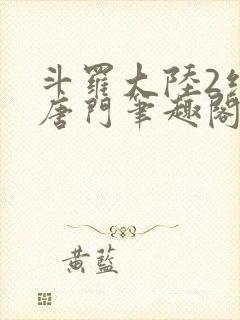 斗羅大陸2
唐門筆趣閣
黃藍